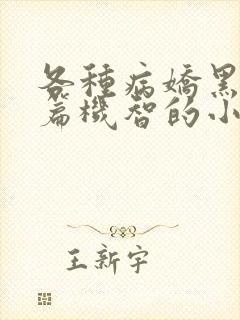 各種病嬌黑
篇機智的小
王新宇